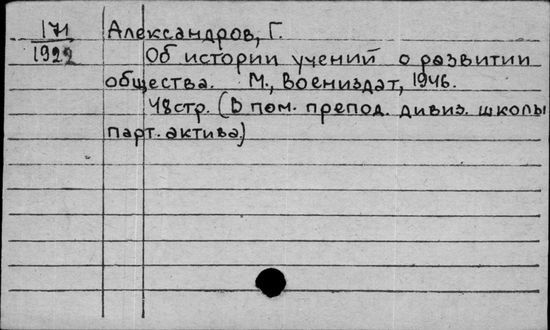 171 Александров, Г.
1922 Об истории учений о развитии
общества. М., Воениздат, 1946.
48стр. (В пом. препод. дивиз. школы
парт. актива.)